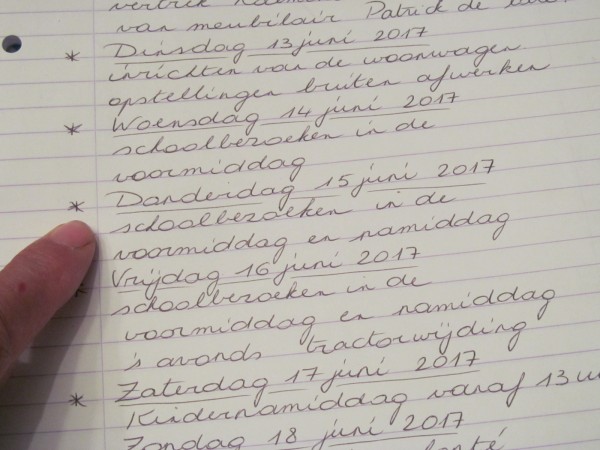 van meubilair Patrick de
* Dinsdag 13 juni 2017
inrichten van de woonwagen
opstellingen buiten afwerken
* Woensdag 14 juni 2017
schoolbezoeken in de
voormiddag
* Donderdag 15 juni 2017
schoolbezoeken in de
voormiddag en namiddag
* Vrijdag 16 juni 2017
schoolbezoeken in de
voormiddag en namiddag
's avonds tractorwijding
* Zaterdag 17 juni 2017
Kindernamiddag vanaf 13 u
Zondag 18 juni 2017